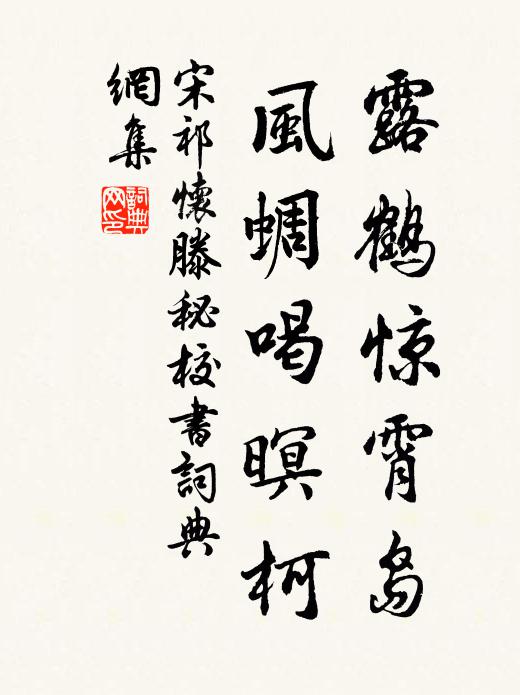 露鹤惊霄岛
風蜩喝暝柯
宋祁懷滕秘校書詞典
網集
詞典
网印